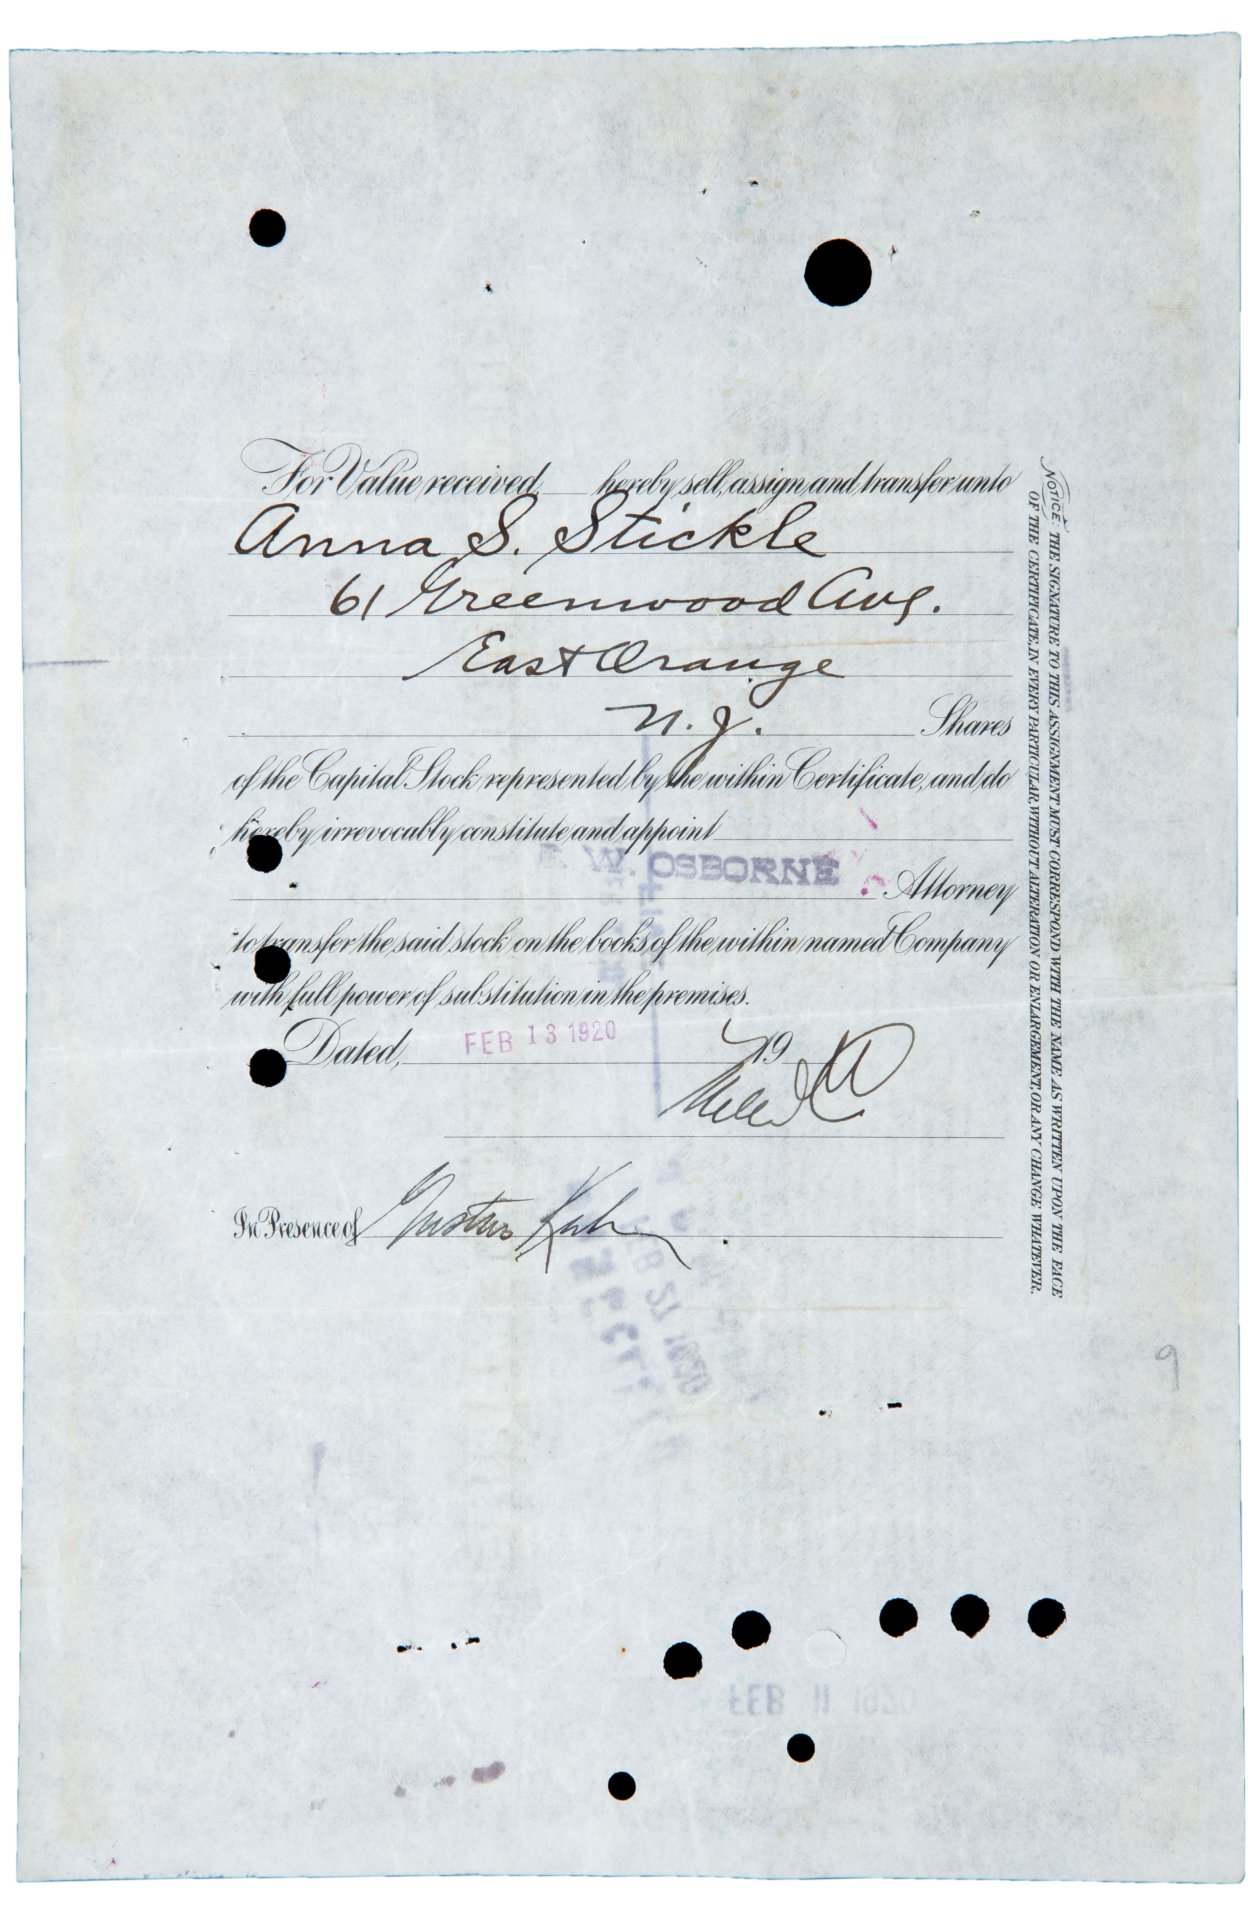 For Value received hereby sell, assign and transfer unto
Anna S. Stickle
61 Greenwood Ave.
East Orange
N. J. Shares
of the Capital Stock represented by the within Certificate, and do
hereby irrevocably constitute and appoint
W. OSBORNE
Attorney
to transfer the said stock on the books of the within named Company
with full power of substitution in the premises.
Dated, FEB 13 1920 19
In Presence of
NOTICE: THE SIGNATURE TO THIS ASSIGNMENT MUST CORRESPOND WITH THE NAME AS WRITTEN UPON THE FACE
OF THE CERTIFICATE, IN EVERY PARTICULAR, WITHOUT ALTERATION OR ENLARGEMENT, OR ANY CHANGE WHATEVER.
9
FEB 11 1920